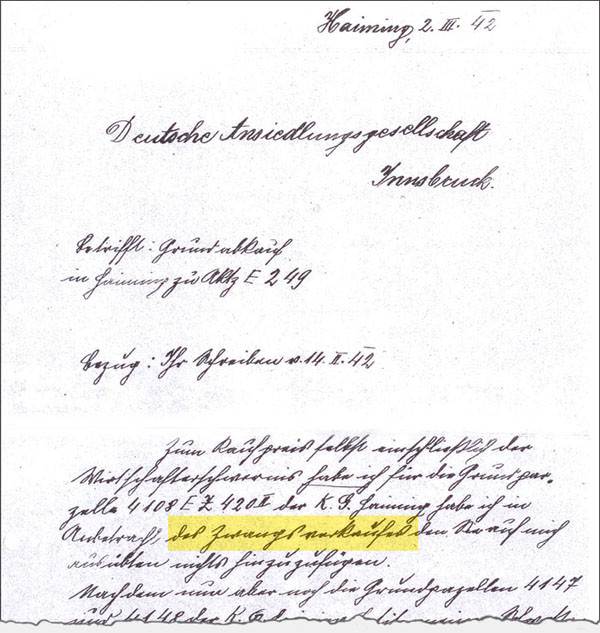 Haiming, 2. III. 42
Deutsche Ansiedlungsgesellschaft
Innsbruck.
Betrifft: Grundabkauf
in Haiming zu Aktz E 249
Bezug: Ihr Schreiben v. 14. II. 42
Zum Kaufpreis selbst einschließlich der
Wirtschafterschwernis habe ich für die Grundpar-
zelle 4108 E Z 420 II der K. G. Haiming habe ich in
Anbetrach, des Zwangsverkaufes den Sie auf mich
ausübten nichts hinzuzufügen.
Nachdem nun aber noch die Grundpazellen 4147
und 4148 der K. G.